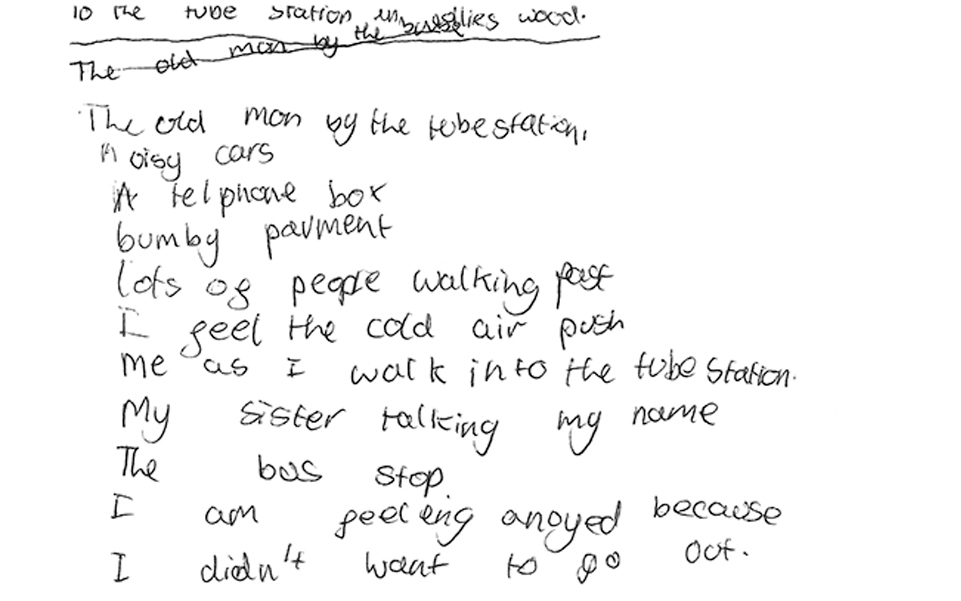 to the tube station in willies wood.
The old man by the
The old man by the tube station,
noisy cars
A telphone box
bumby pavment
lots of people walking past
I feel the cold air push
me as I walk into the tube station.
My sister talking my name
The bus stop
I am feeleng anoyed because
I didn't want to go out.